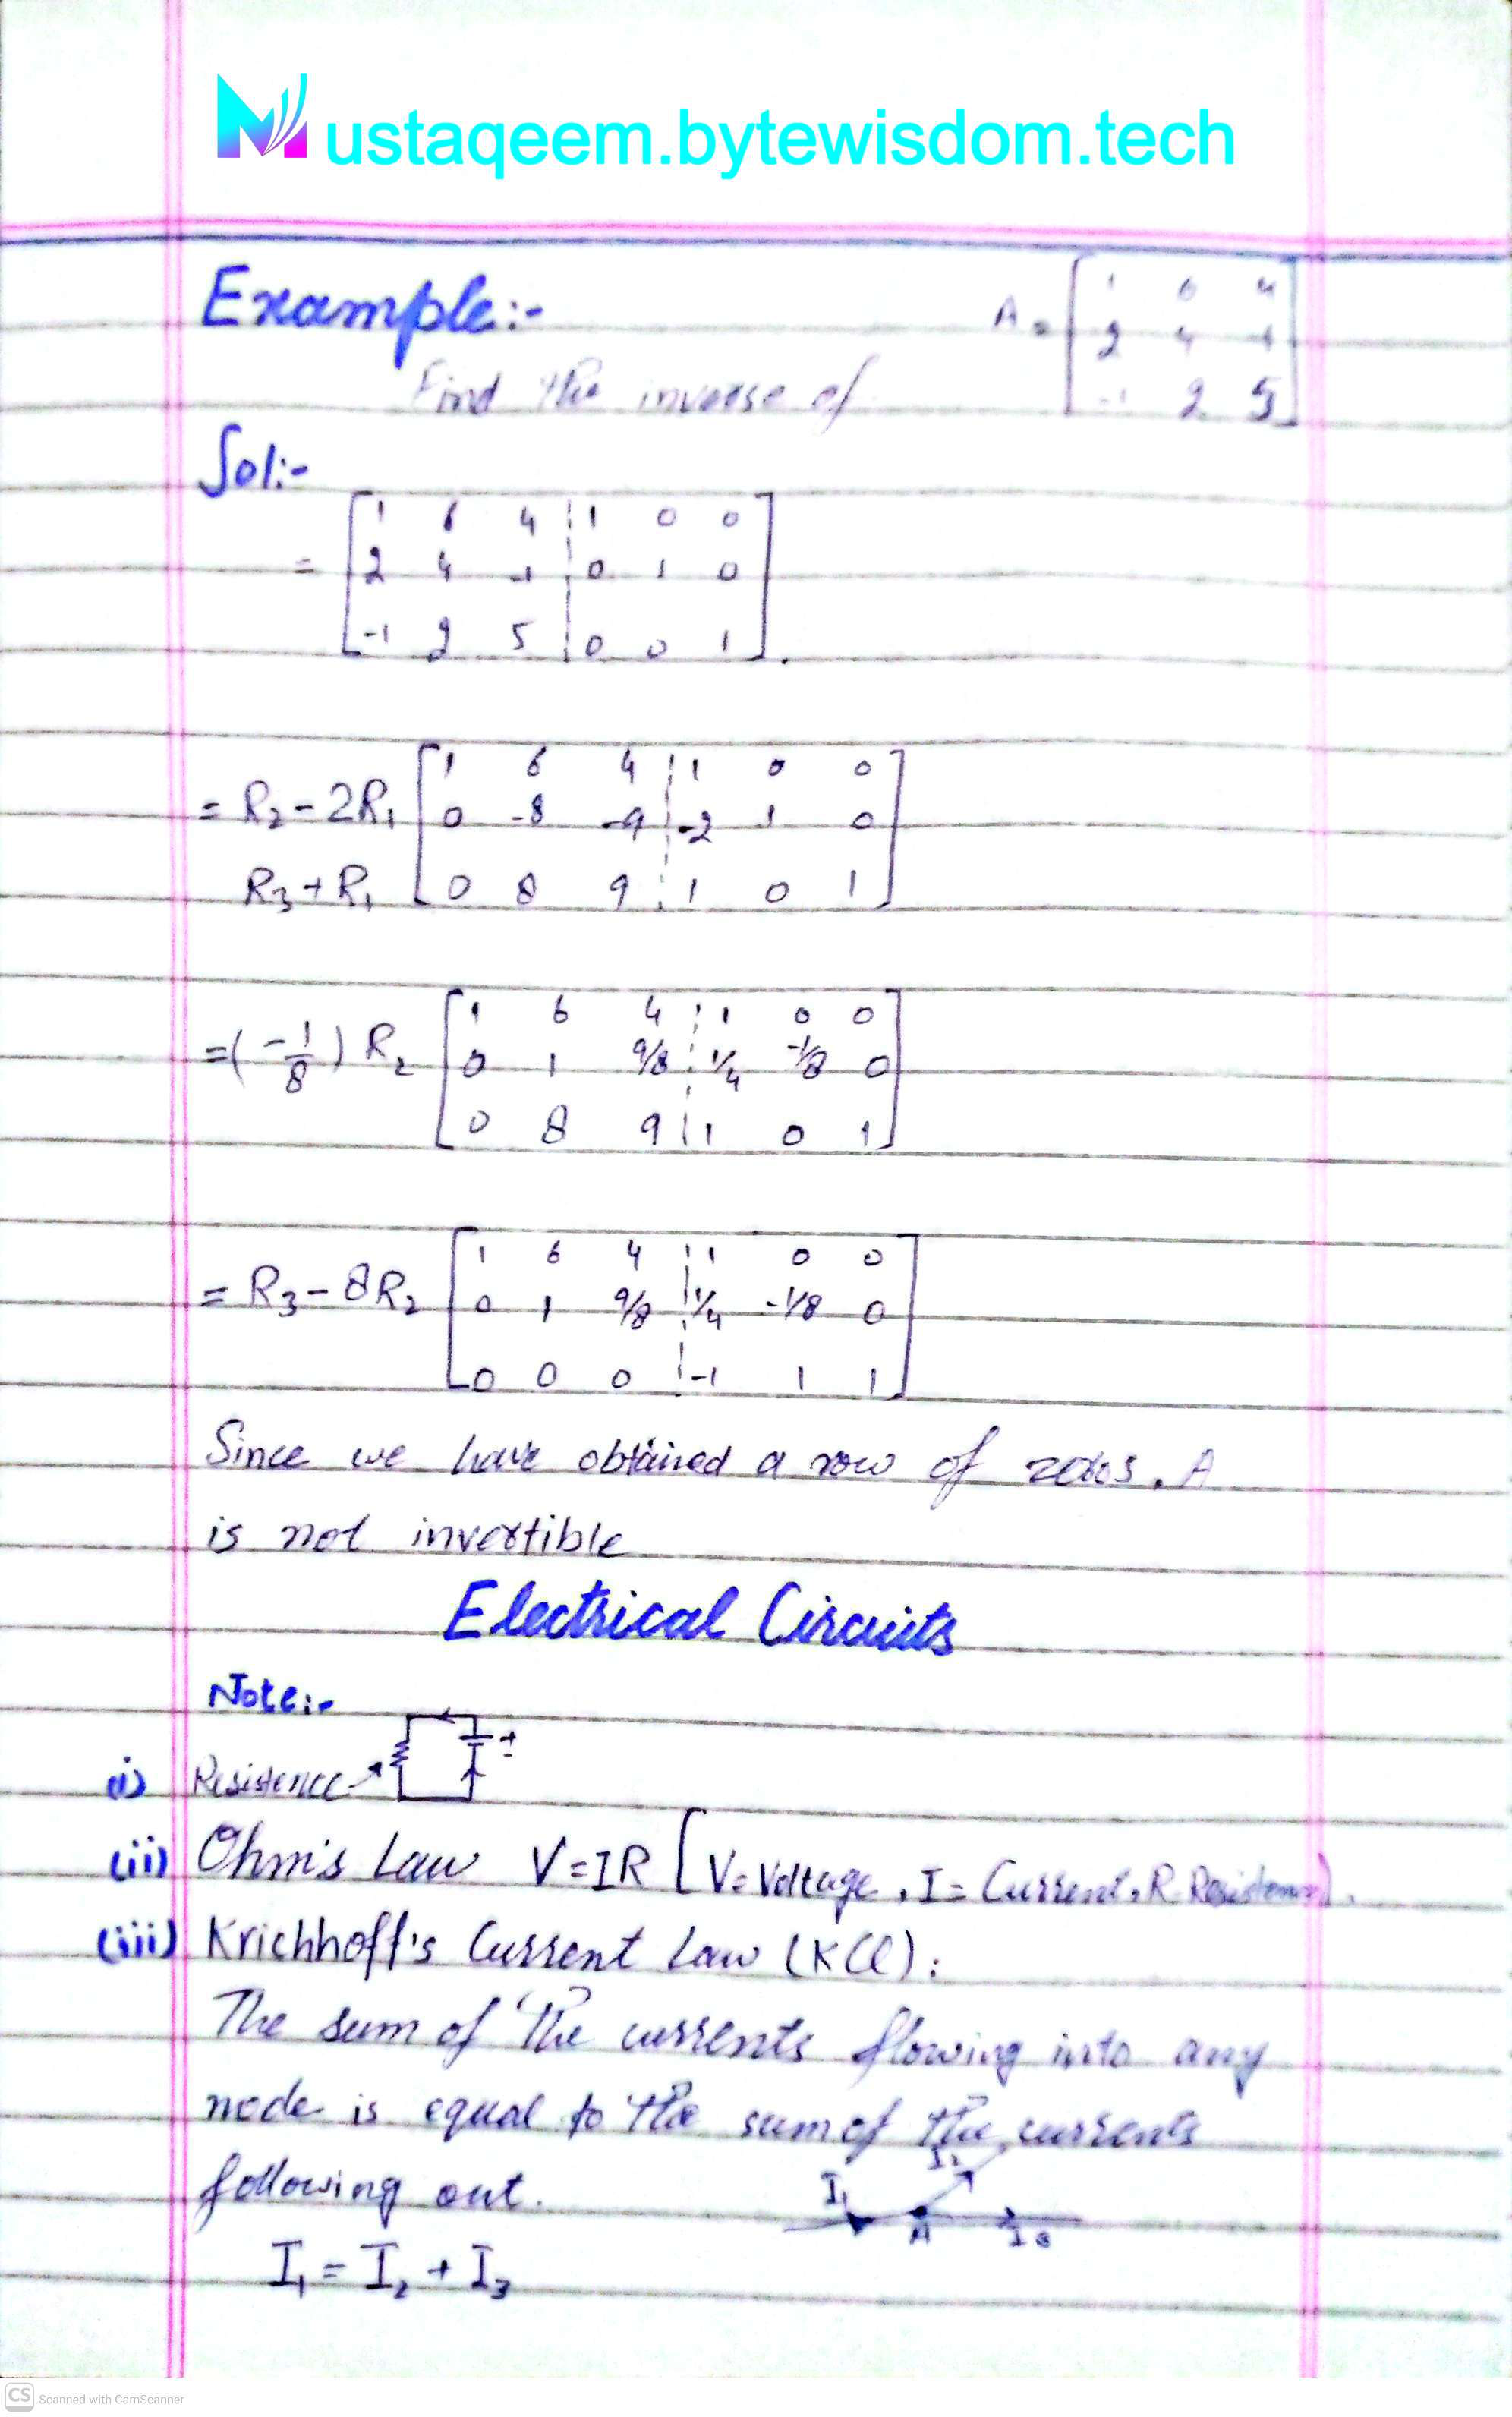 Mustaqeem.bytewisdom.tech
Example:-
A = [ 1 6 4
2 4 -1
-1 2 5 ]
Find the inverse of
Sol:-
= [ 1 6 4 | 1 0 0
2 4 -1 | 0 1 0
-1 2 5 | 0 0 1 ].
= R₂ - 2R₁ [ 1 6 4 | 1 0 0
0 -8 -9 | -2 1 0
R₃ + R₁ 0 8 9 | 1 0 1 ]
= (-1/8) R₂ [ 1 6 4 | 1 0 0
0 1 9/8 | 1/4 -1/8 0
0 8 9 | 1 0 1 ]
= R₃ - 8R₂ [ 1 6 4 | 1 0 0
0 1 9/8 | 1/4 -1/8 0
0 0 0 | -1 1 1 ]
Since we have obtained a row of zeros. A
is not invertible
Electrical Circuits
Note:-
+
-
(i) Resistence
(ii) Ohm's Law V=IR [V=Voltage, I= Current, R=Resistence].
(iii) Krichhoff's Current Law (KCl):
The sum of the currents flowing into any
node is equal to the sum of the currents
following out.
I₁ I₂ A I₃
I₁ = I₂ + I₃
CS Scanned with CamScanner